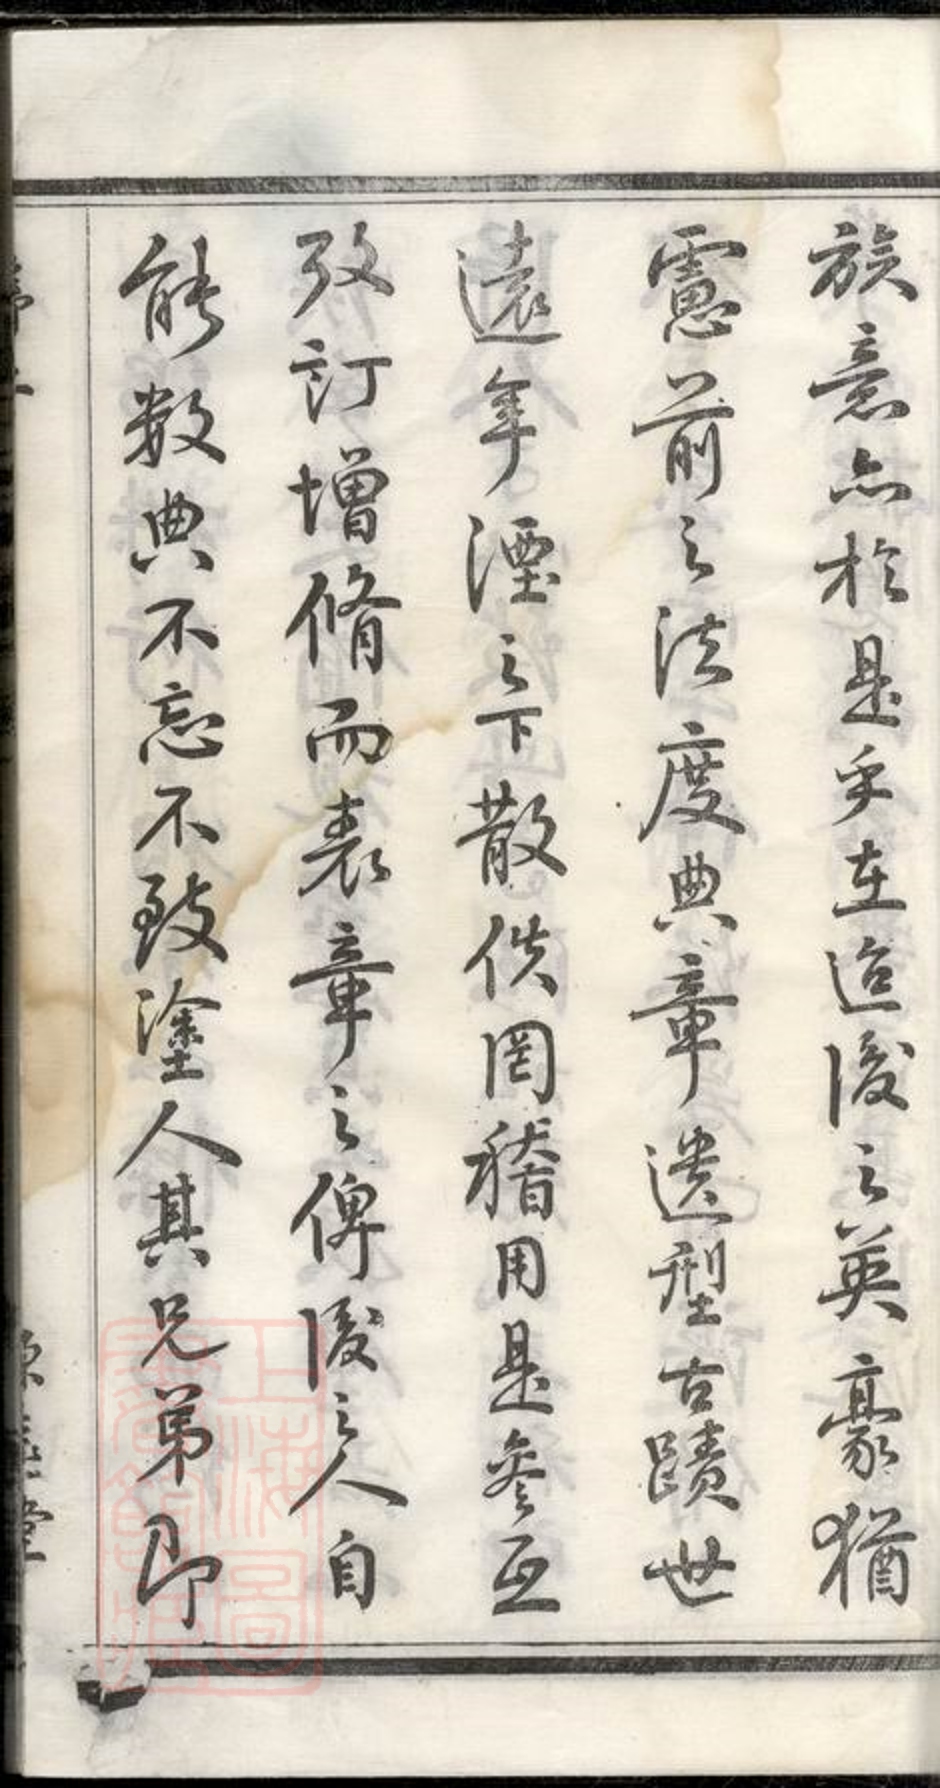 族意亦於是乎在迨後之英豪猶
慮前之法度典章遺型古蹟世
遠年湮之下散佚罔稽用是參互
攷訂增脩而表章之俾後之人自
能數典不忘不致塗人其兄弟即
上海圖